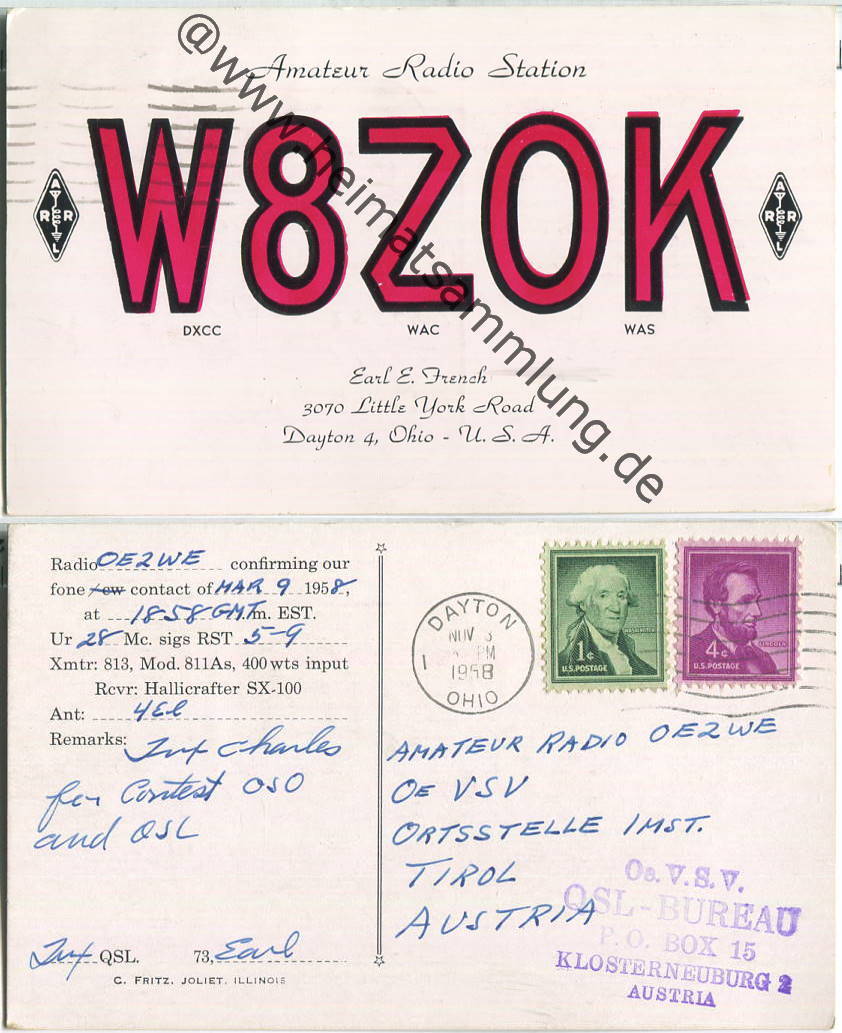 @www.heimatsammlung.de
Amateur Radio Station
W8ZOK
A
R R
L
A
R R
L
DXCC WAC WAS
Earl E. French
3070 Little York Road
Dayton 4, Ohio - U. S. A.
Radio OE2WE confirming our
fone /cw contact of MAR 9 1958,
at 1858 GMT m. EST.
Ur 28 Mc. sigs RST 5-9
Xmtr: 813, Mod. 811As, 400 wts input
Rcvr: Hallicrafter SX-100
Ant: 4El
Remarks: Tnx Charles
for Contest QSO
and QSL
Tnx QSL. 73, Earl
C. FRITZ, JOLIET, ILLINOIS
DAYTON
NOV 3
PM
1958
OHIO
1¢
WASHINGTON
U.S. POSTAGE
4¢
LINCOLN
U.S. POSTAGE
AMATEUR RADIO OE2WE
OE VSV
ORTSSTELLE IMST.
TIROL
AUSTRIA
Oe. V. S. V.
QSL-BUREAU
P. O. BOX 15
KLOSTERNEUBURG 2
AUSTRIA